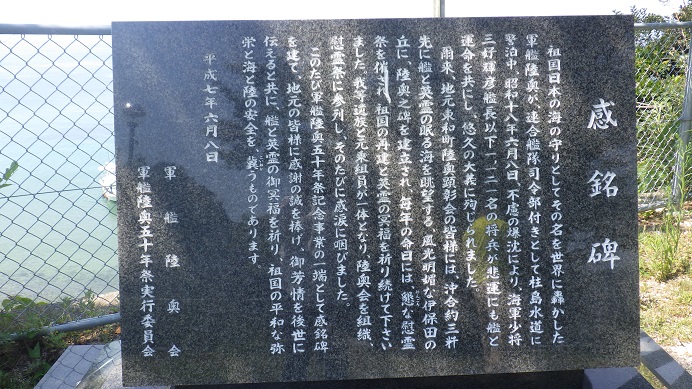 感銘碑
祖国日本の海の守りとしてその名を世界に轟かした
軍艦陸奥が、連合艦隊司令部付きとして柱島水道に
警泊中、昭和十八年六月八日、不慮の爆沈により、海軍少将
三好輝彦艦長以下一一二一名の将兵が悲運にも艦と
運命を共にし、悠久の大義に殉じられました。
爾来、地元東和町陸奥顕彰会の皆様には、沖合約三粁
先に艦と英霊の眠る海を眺望する、風光明媚な伊保田の
丘に、陸奥之碑を建立され、毎年の命日には、懇な慰霊
祭を催され、祖国の再建と英霊の冥福を祈り続けて下さい
ました。我等遺族と元乗組員が一体となり陸奥会を組織、
慰霊祭に参列し、そのたびに感涙に咽びました。
このたび軍艦陸奥五十年祭記念事業の一端として感銘碑
を建て、地元の皆様に感謝の誠を捧げ、御芳情を後世に
伝えると共に、艦と英霊の御冥福を祈り、祖国の平和な弥
栄と海と陸の安全を、冀うものであります。
平成七年六月八日
軍艦陸奥会
軍艦陸奥五十年祭実行委員会